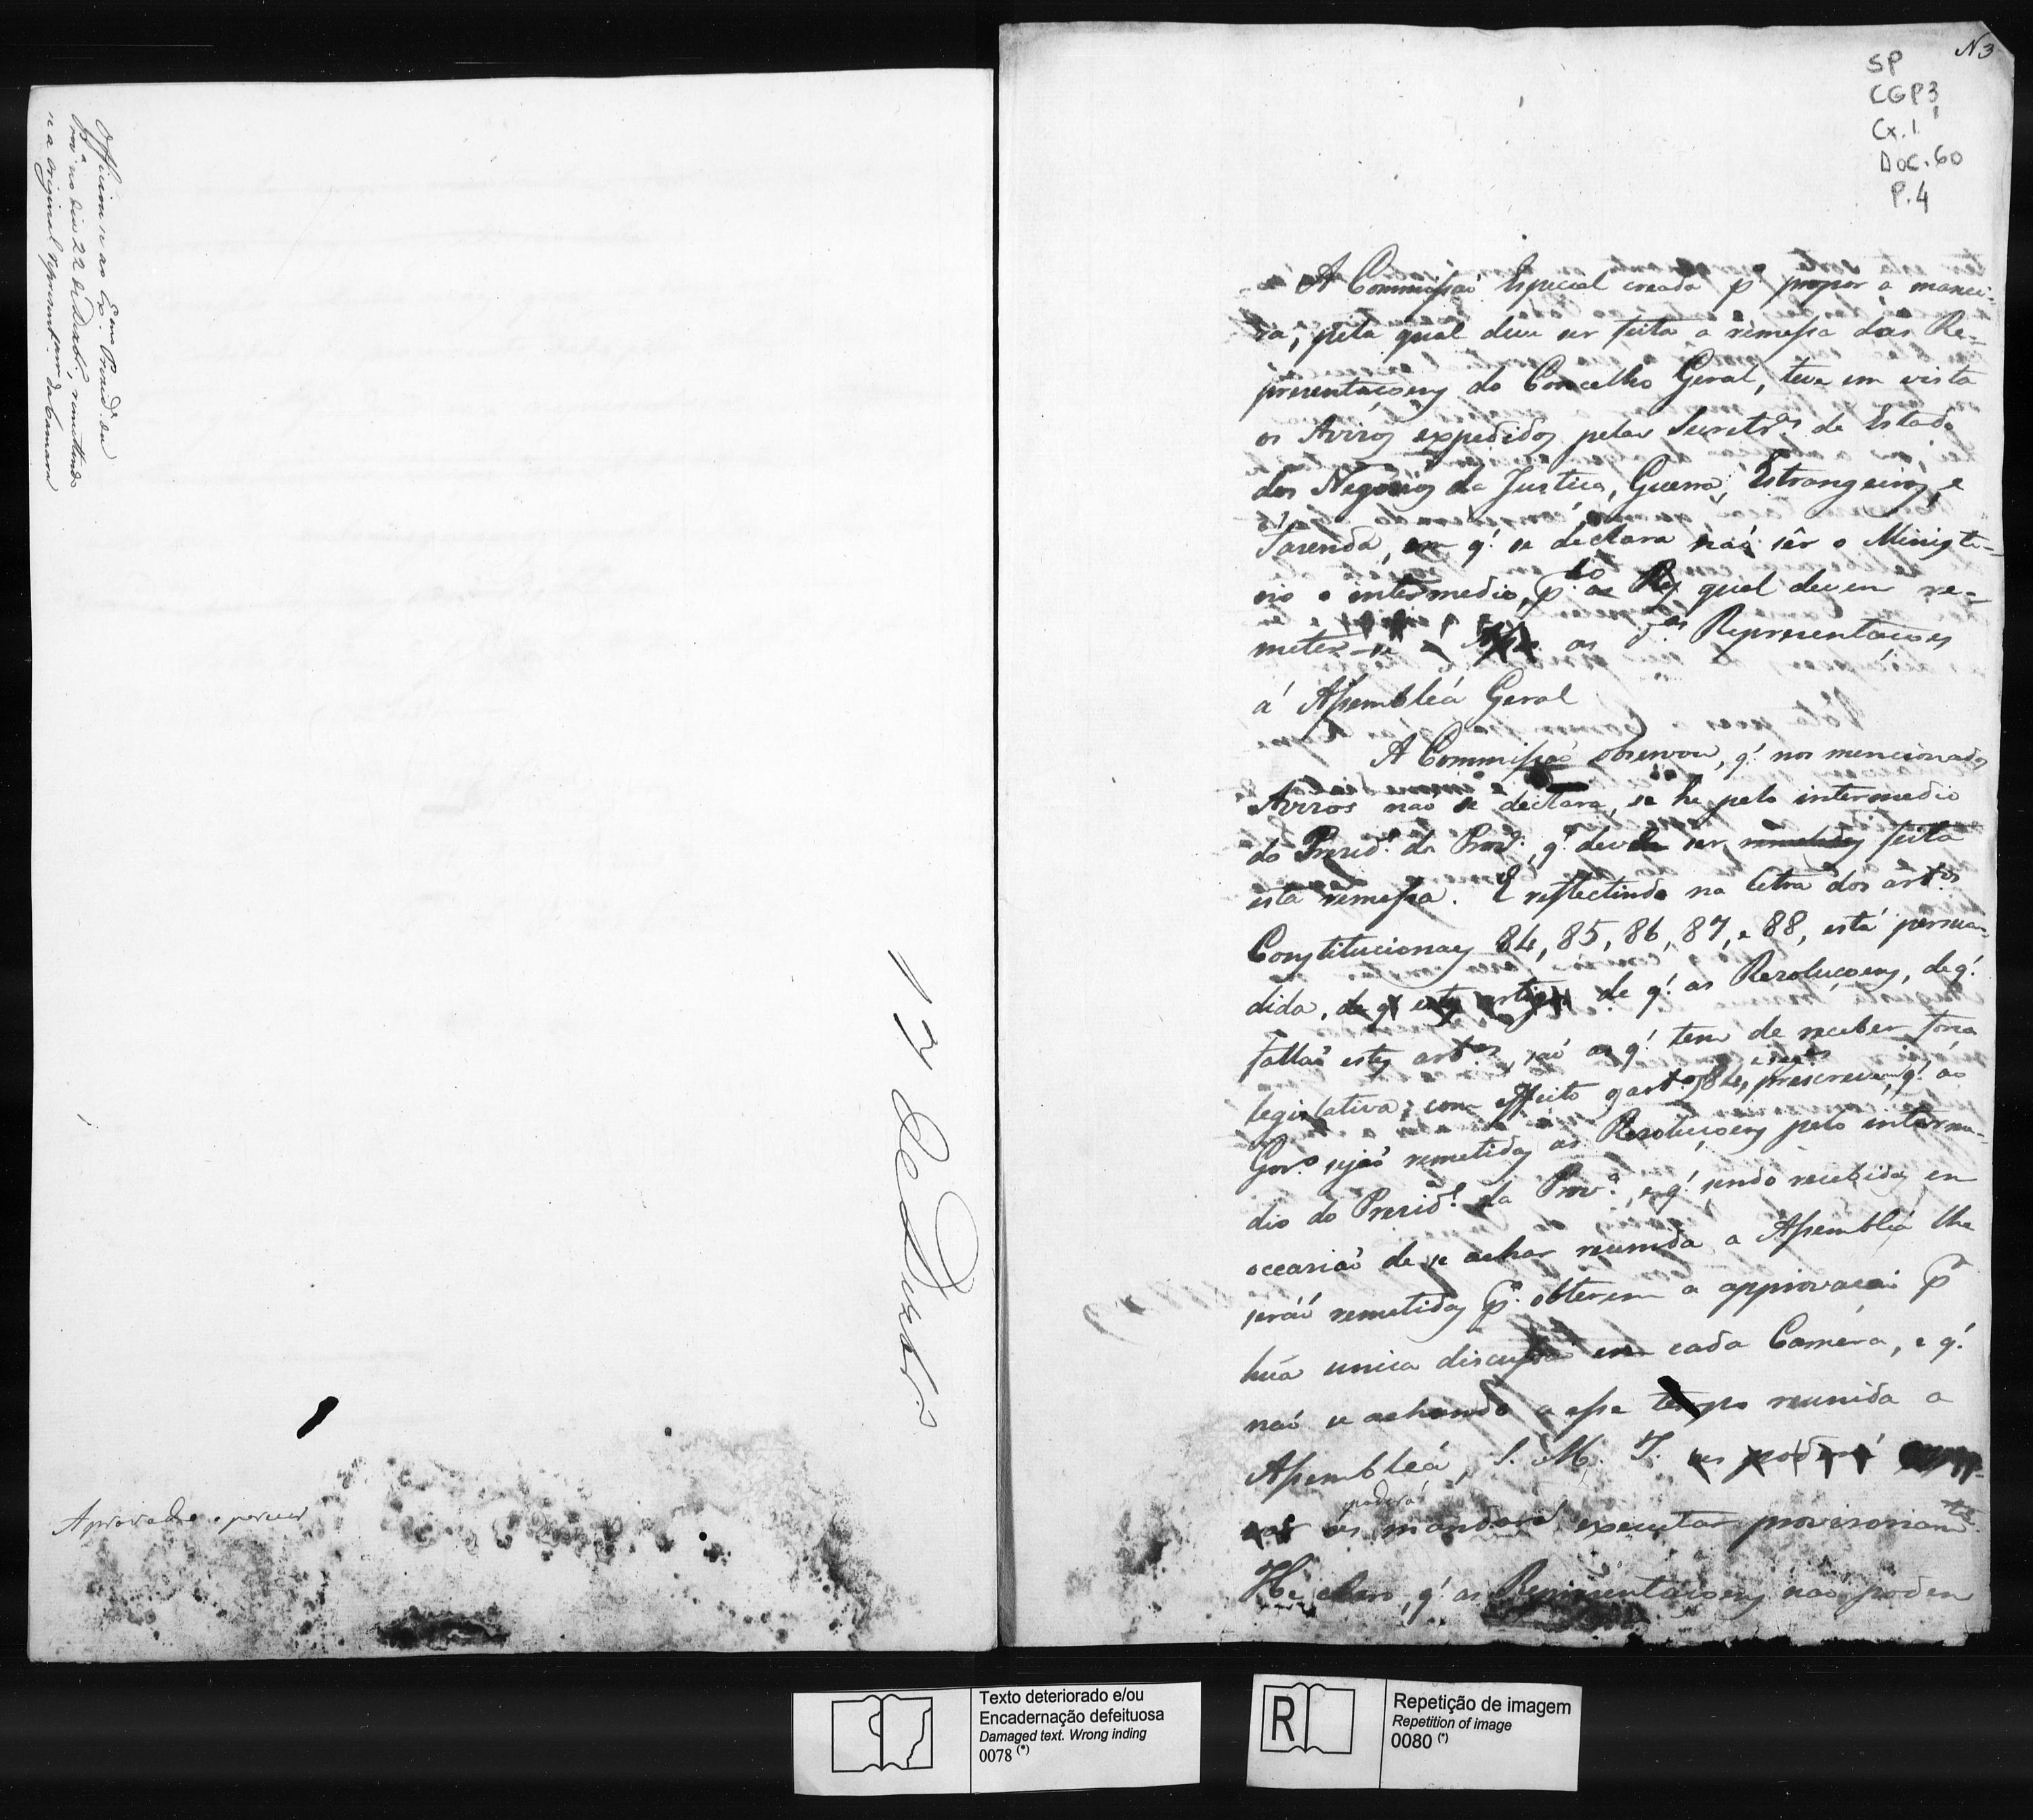 Officiou-se ao Exmo Presid.e em
Prov.a no dia 22 de Dezbr.o, remettendo
se a original representaçam da Camara
13 de Dezbr.o
Aprovado o parecer
N 3
SP
CGP3
Cx. 1
Doc. 60
P. 4
A Commissaõ Especial creada p.a propor a manei-
ra, pela qual deve ser feita a remessa das Re-
presentaçoens do Concelho Geral, teve em vista
os Avizos expedidos pelas Secretr.as de Estado
dos Negocios da Justica, Guerra, Estrangeiros, e
Fazenda, em q.' se declara naõ sêr o Ministe-
rio o intermedio, p.lo qual devem re-
meter-se as d.as Representaçoes
á Assembléa Geral
A Commissaõ observou, q.' nos mencionados
Avizos naõ se declara, se he pelo intermedio
do Prezid.e da Prov.a, q.' deve ser remetidas feita
esta remessa. E reflectindo na letra dos art.os
Constitucionaes 84, 85, 86, 87, e 88, está persua-
dida, de q.' estes artigos de q.' as Resoluçoens, de q.'
fallaõ estes art.os, saõ as q.' tem de receber forca
legislativa; com effeito o art.o 84, e seg.es prescrevem, q.' ao
Gov.o sejaõ remetidas as Resoluçoens pelo interme-
dio do Prezid.e da Prov.a, e q.' sendo recebidas em
occaziaõ de se achar reunida a Assembléa lhe
seráõ remetidas p.a obterem a approvacaõ p.r
huã unica discussaõ em cada Camera, e q.'
naõ se achando a esse tempo reunida a
Assembléa, S. M. I. as poderá
poderá
as mandar executar provisoriam.te
Hé claro, q.' as Representaçoens naõ podem
Texto deteriorado e/ou
Encadernação defeituosa
Damaged text. Wrong inding
0078 (*)
R
Repetição de imagem
Repetition of image
0080 (*)